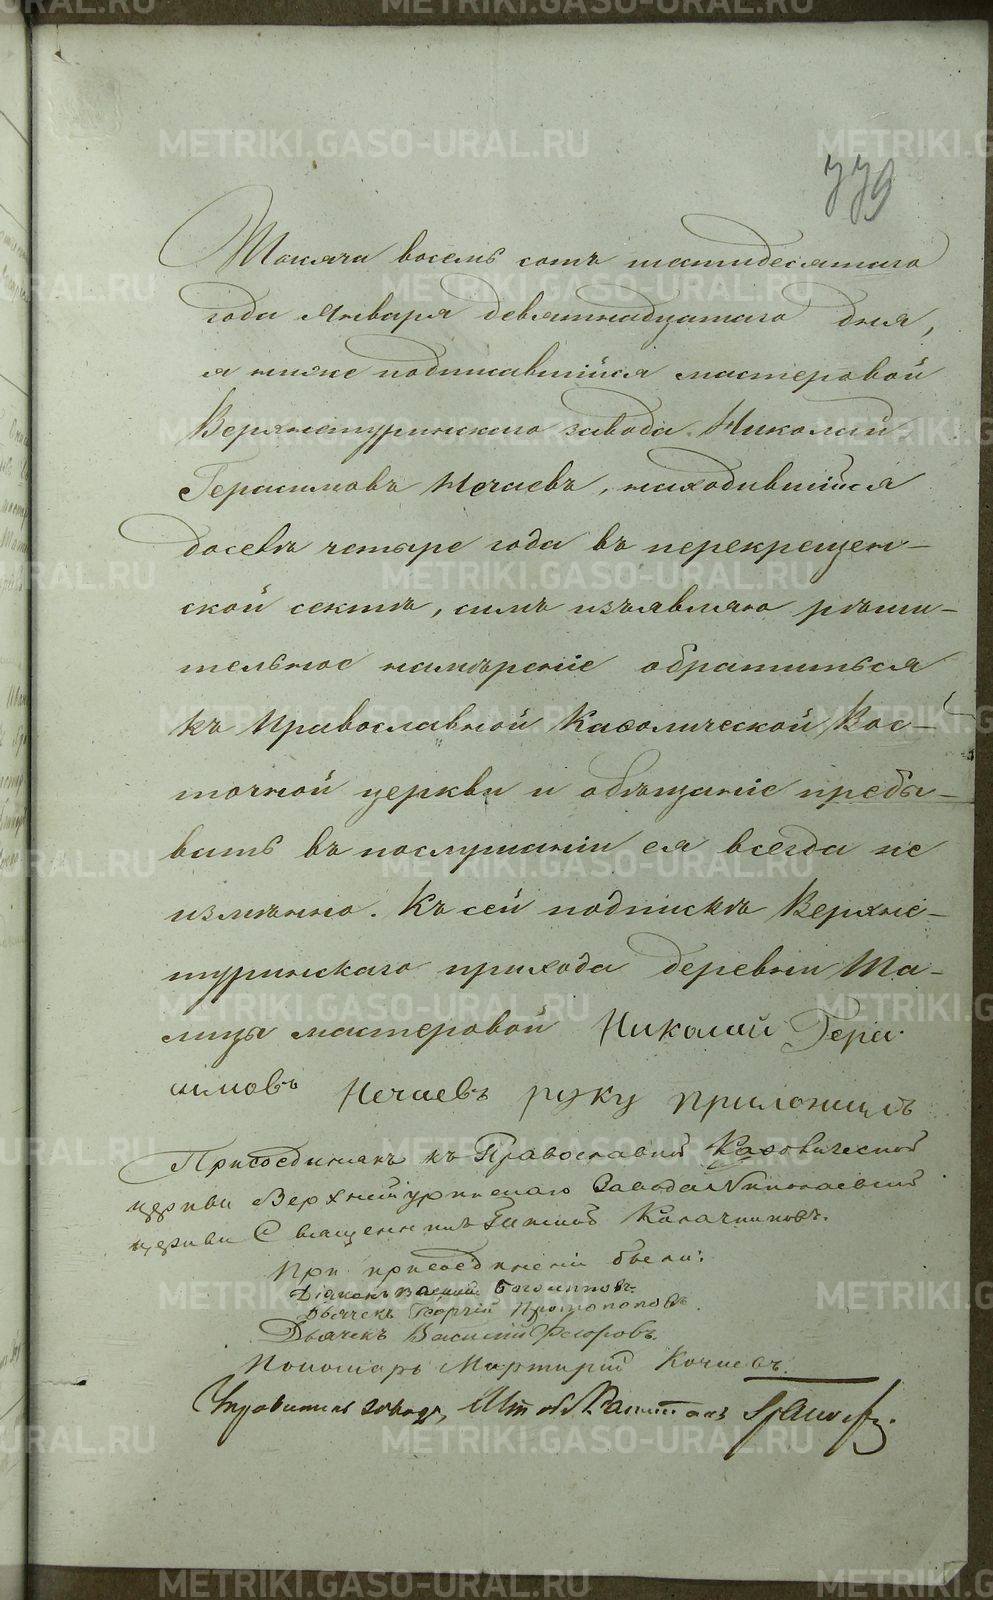 779
Тысяча восемь сотъ шестидесятаго
года Января девятнадцатаго дня,
я ниже подписавшійся мастеровой
Верхнетуринскаго завода Николай
Герасимовъ Нечаевъ, находившійся
доселѣ четыре года въ перекрещен-
ской сектѣ, симъ изъявляю рѣши-
тельное намѣреніе обратиться
къ Православной Каѳолической Вос-
точной церкви и обѣщаніе пребы-
вать въ послушаніи ея всегда не
измѣнно. Къ сей подпискѣ Верхне-
туринскаго прихода деревни Ма-
лицы мастеровой Николай Гера
симовъ Нечаевъ руку приложилъ
Присоединялъ къ Православной Каѳолической
церкви Верхнетуринскаго Завода Николаевской
церкви Священникъ Калачниковъ.
При присоединеніи были:
Діаконъ Василій
Дьячекъ Георгій Протопоповъ
Дьячекъ Василій Флоровъ.
Пономарь Мартирій Кочневъ.
Управитель завода, Капитанъ
METRIKI.GASO-URAL.RU